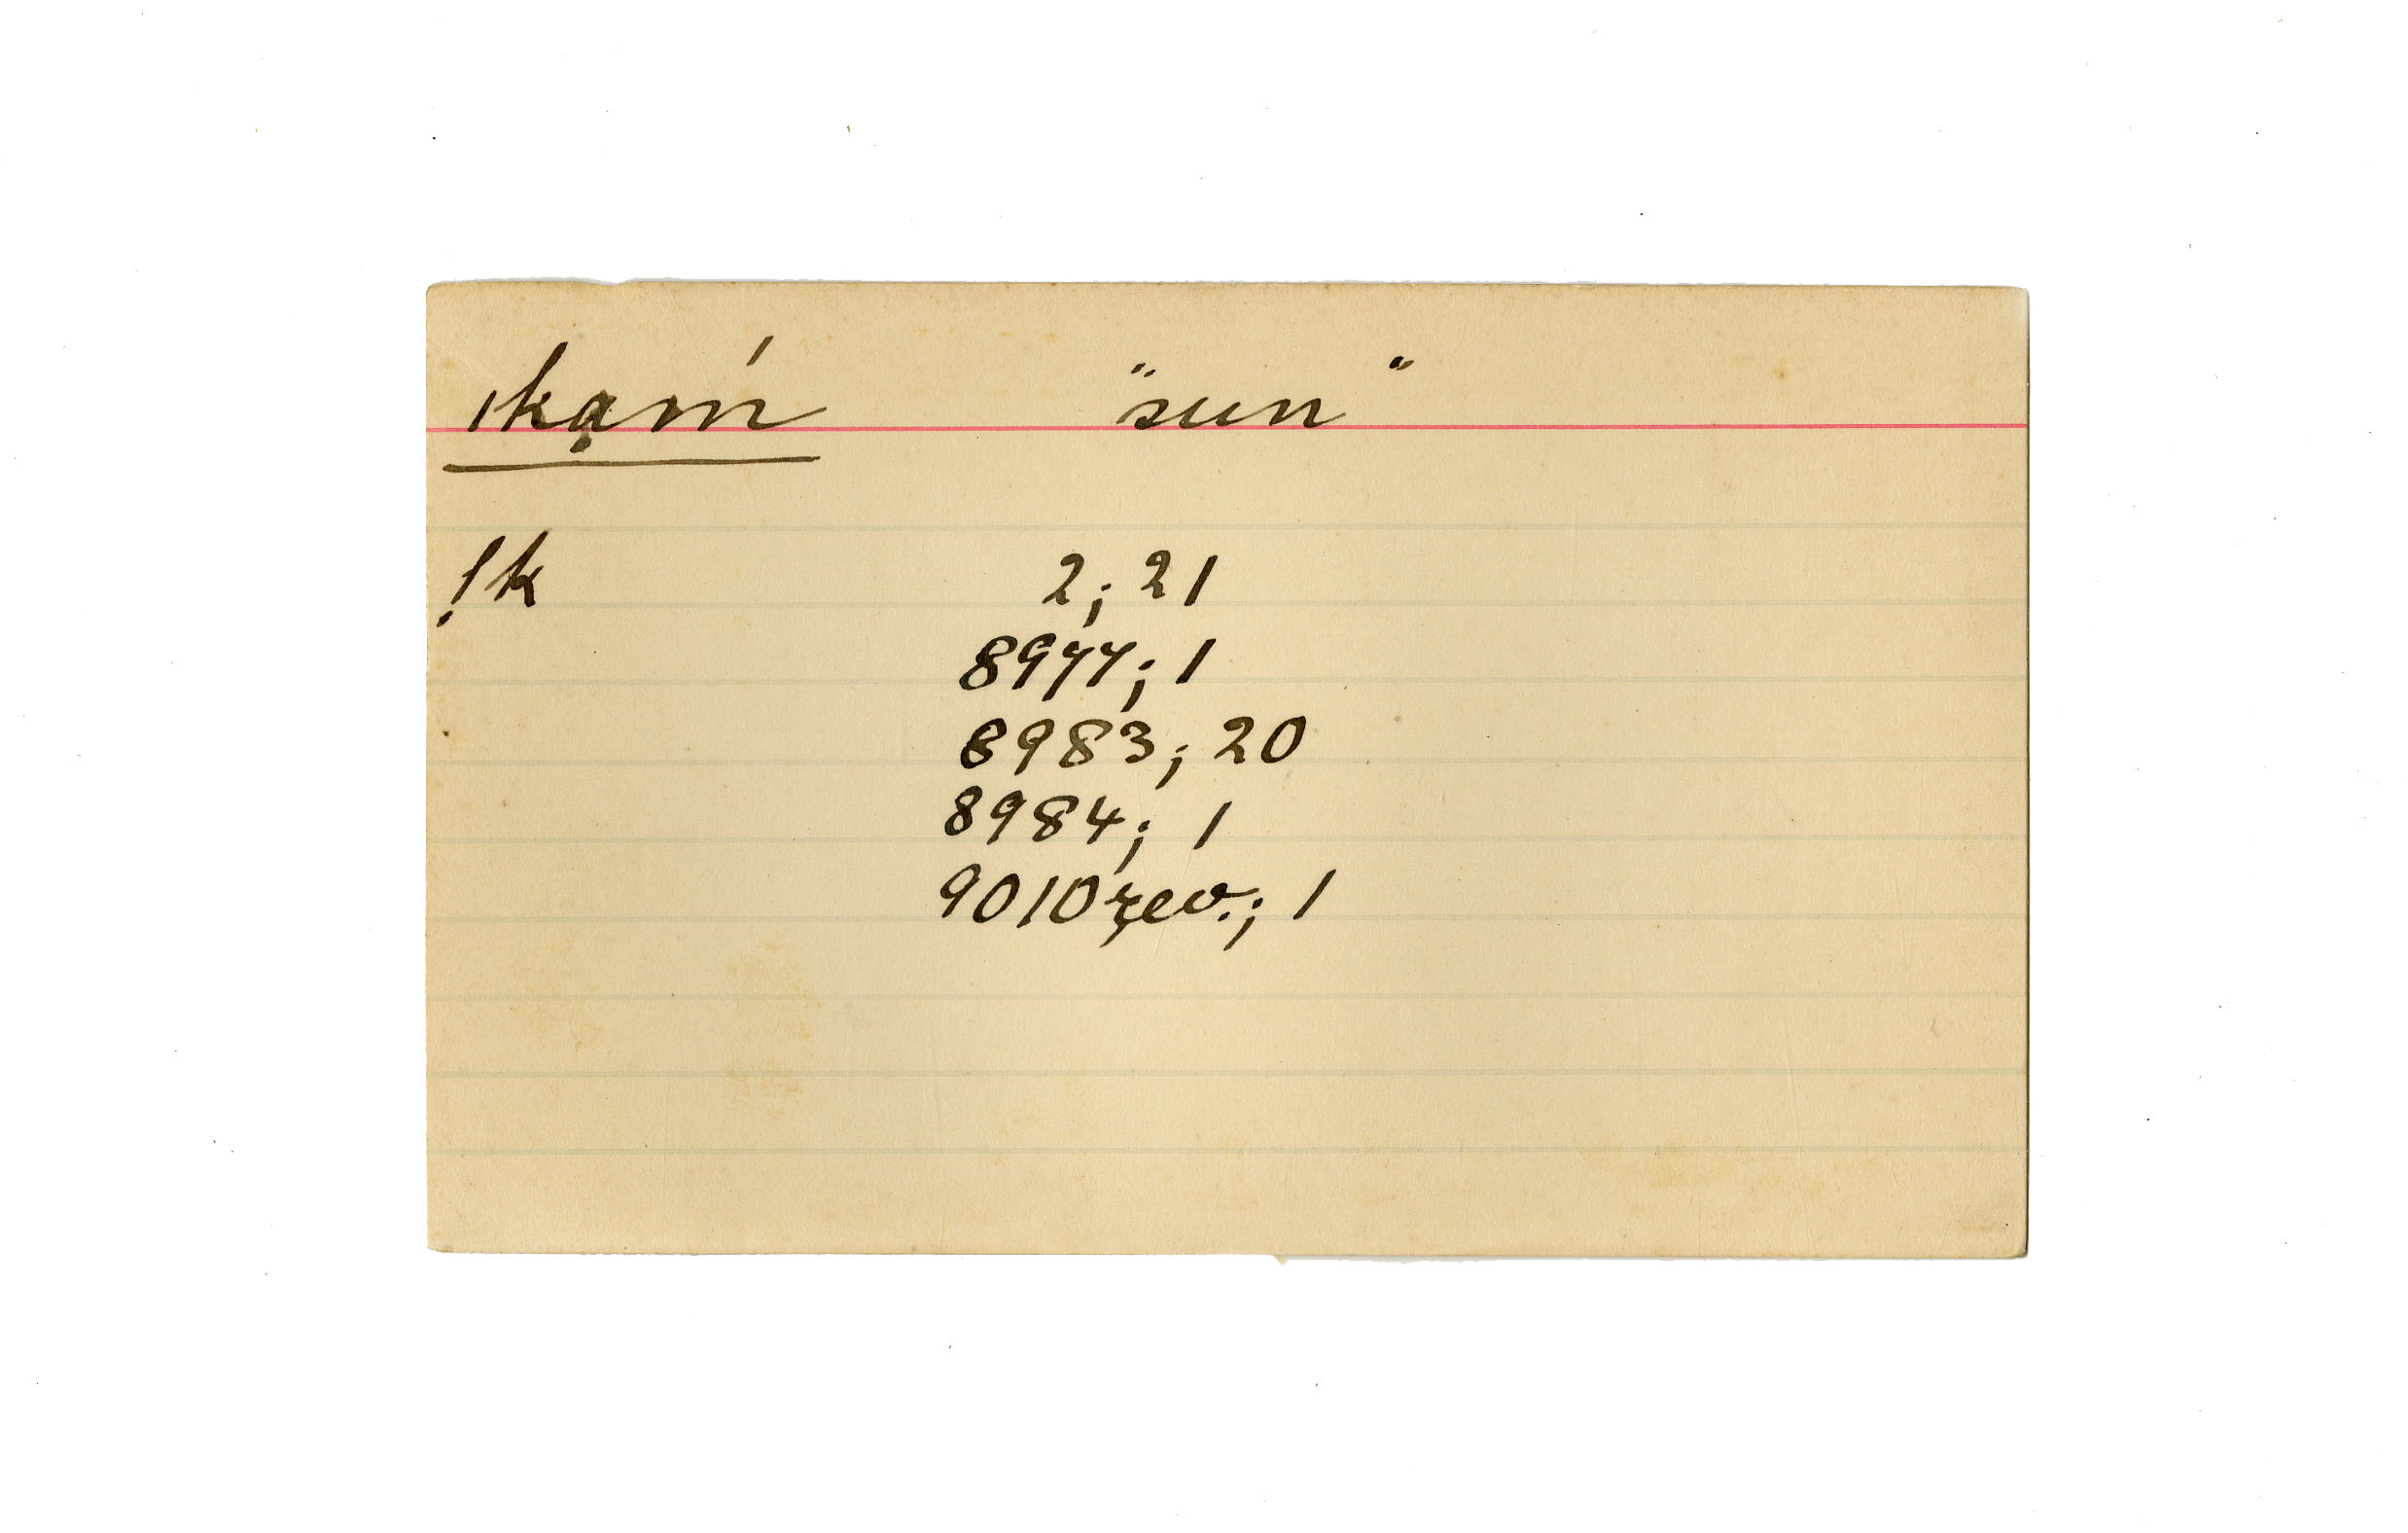 ıkạḿ "sun"
!k 2; 21
8977; 1
8983; 20
8984; 1
9010 rev.; 1